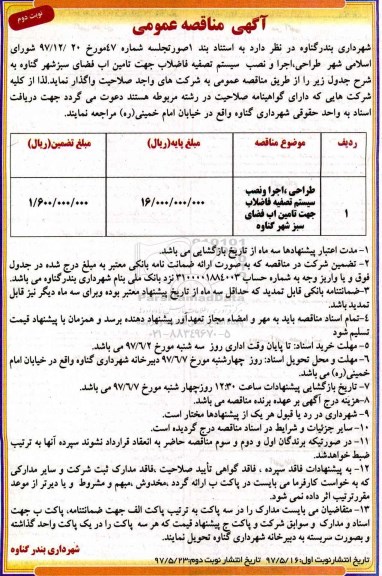 نوبت دوم
آگهی مناقصه عمومی
شهرداری بندرگناوه در نظر دارد به استناد بند ۱صورتجلسه شماره ۴۷مورخ ۹۷/۱۲/۲۰ شورای
اسلامی شهر طراحی،اجرا و نصب سیستم تصفیه فاضلاب جهت تامین اب فضای سبزشهر گناوه به
شرح جدول زیر را از طریق مناقصه عمومی به شرکت های واجد صلاحیت واگذار نماید.لذا از کلیه
شرکت هایی که دارای گواهینامه صلاحیت در رشته مربوطه هستند دعوت می گردد جهت دریافت
اسناد به واحد حقوقی شهرداری گناوه واقع در خیابان امام خمینی(ره) مراجعه نمایند.
ردیف موضوع مناقصه مبلغ پایه(ریال) مبلغ تضمین(ریال)
طراحی ،اجرا ونصب
سیستم تصفیه فاضلاب
۱ جهت تامین اب فضای ۱۶/۰۰۰/۰۰۰/۰۰۰ ۱/۶۰۰/۰۰۰/۰۰۰
سبز شهر گناوه
۱- مدت اعتبار پیشنهادها سه ماه از تاریخ بازگشایی می باشد.
۲- تضمین شرکت در مناقصه که به صورت ارائه ضمانت نامه بانکی معتبر به مبلغ درج شده در جدول
فوق و یا واریز وجه به شماره حساب نزد بانک ملی بنام شهرداری بندرگناوه می باشد.
۳-ضمانتنامه بانکی قابل تمدید که حداقل سه ماه از تاریخ پیشنهاد معتبر بوده وبرای سه ماه دیگر نیز قابل
تمدید باشد.
۴-تمام اسناد مناقصه باید به مهر و امضاء مجاز تعهدآور پیشنهاد دهنده برسد و همزمان با پیشنهاد قیمت
تسلیم شود
۵- مهلت خرید اسناد: تا پایان وقت اداری روز سه شنبه مورخ ۹۷/۶/۲ می باشد.
۶- مهلت و محل تحویل اسناد: روز چهارشنبه مورخ ۹۷/۶/۷ دبیرخانه شهرداری گناوه واقع در خیابان امام
خمینی(ره) می باشد.
۷- تاریخ بازگشایی پیشنهادات ساعت ۱۲:۳۰ روزچهار شنبه مورخ ۹۷/۶/۷ می باشد.
۸-هزینه درج آگهی بر عهده برنده مناقصه می باشد.
۹- شهرداری در رد یا قبول هر یک از پیشنهادها مختار است.
۱۰- سایر جزئیات و شرایط در اسناد مناقصه درج گردیده است.
۱۱- در صورتیکه برندگان اول و دوم و سوم مناقصه حاضر به انعقاد قرارداد نشوند سپرده آنها به ترتیب
ضبط خواهدشد.
۱۲- به پیشنهادات فاقد سپرده ، فاقد گواهی تأیید صلاحیت ،فاقد مدارک ثبت شرکت و سایر مدارکی
که به خواست کارفرما می بایست در پاکت ب ارائه گردد ،مخدوش ،مبهم و مشروط و یا دیرتر از موعد
مقررترتیب اثر داده نمی شود.
۱۳- متقاضیان می بایست مدارک را در سه پاکت به ترتیب پاکت الف جهت ضمانتنامه، پاکت ب جهت
اسناد و مدارک و سوابق شرکت و پاکت ج پیشنهاد قیمت که هر سه پاکت را در یک پاکت واحد گذاشته
و بصورت سربسته به دبیرخانه شهرداری گناوه تحویل نمایند.
شهرداری بندر گناوه
تاریخ انتشارنوبت اول:۹۷/۵/۱۶ تاریخ انتشارنوبت دوم:۹۷/۵/۲۳